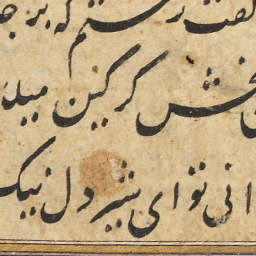 گفت رستم که بر
بخش کرکین میلا
انی توای شیر دل نیک